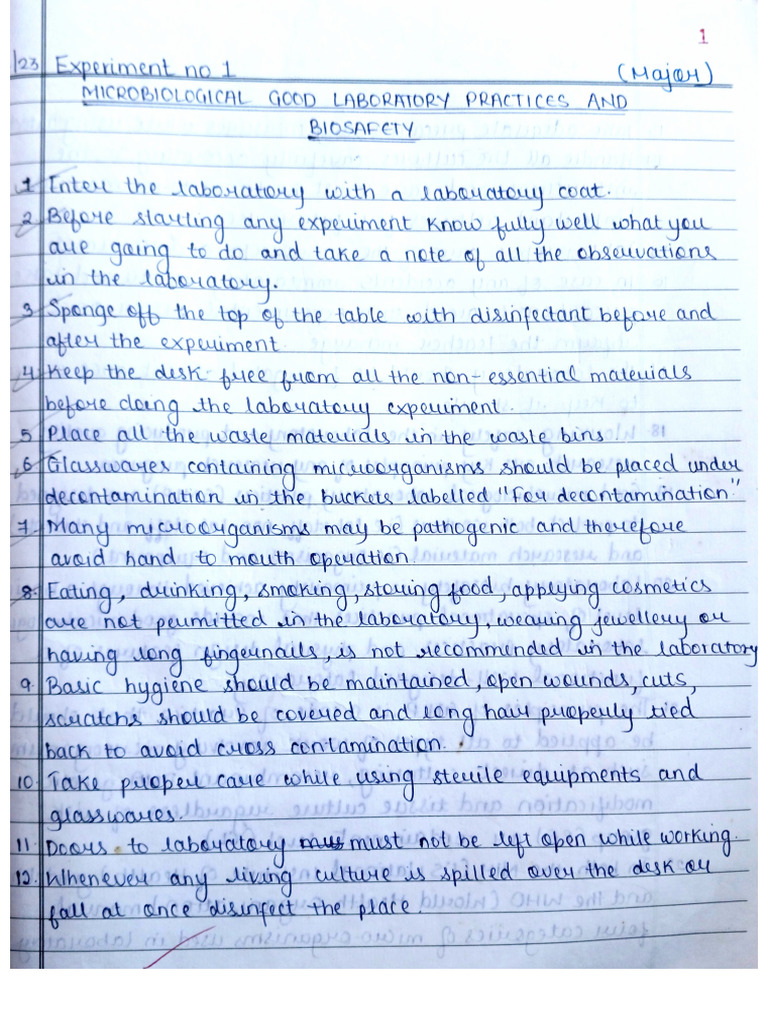 1
/23 Experiment no 1 (Major)
MICROBIOLOGICAL GOOD LABORATORY PRACTICES AND
BIOSAFETY
1. Enter the laboratory with a laboratory coat.
2. Before starting any experiment know fully well what you
are going to do and take a note of all the observations
in the laboratory.
3. Sponge off the top of the table with disinfectant before and
after the experiment.
4. Keep the desk free from all the non-essential materials
before doing the laboratory experiment.
5. Place all the waste materials in the waste bins
6. Glasswares, containing microorganisms should be placed under
decontamination in the buckets labelled "for decontamination"
7. Many microorganisms may be pathogenic and therefore
avoid hand to mouth operation.
8. Eating, drinking, smoking, storing food, applying cosmetics
are not permitted in the laboratory, wearing jewellery or
having long fingernails, is not recommended in the laboratory
9. Basic hygiene should be maintained, open wounds, cuts,
scratchs should be covered and long hair properly tied
back to avoid cross contamination.
10. Take proper care while using sterile equipments and
glasswares.
11. Doors to laboratory must not be left open while working.
12. Whenever any living culture is spilled over the desk or
fall at once disinfect the place.